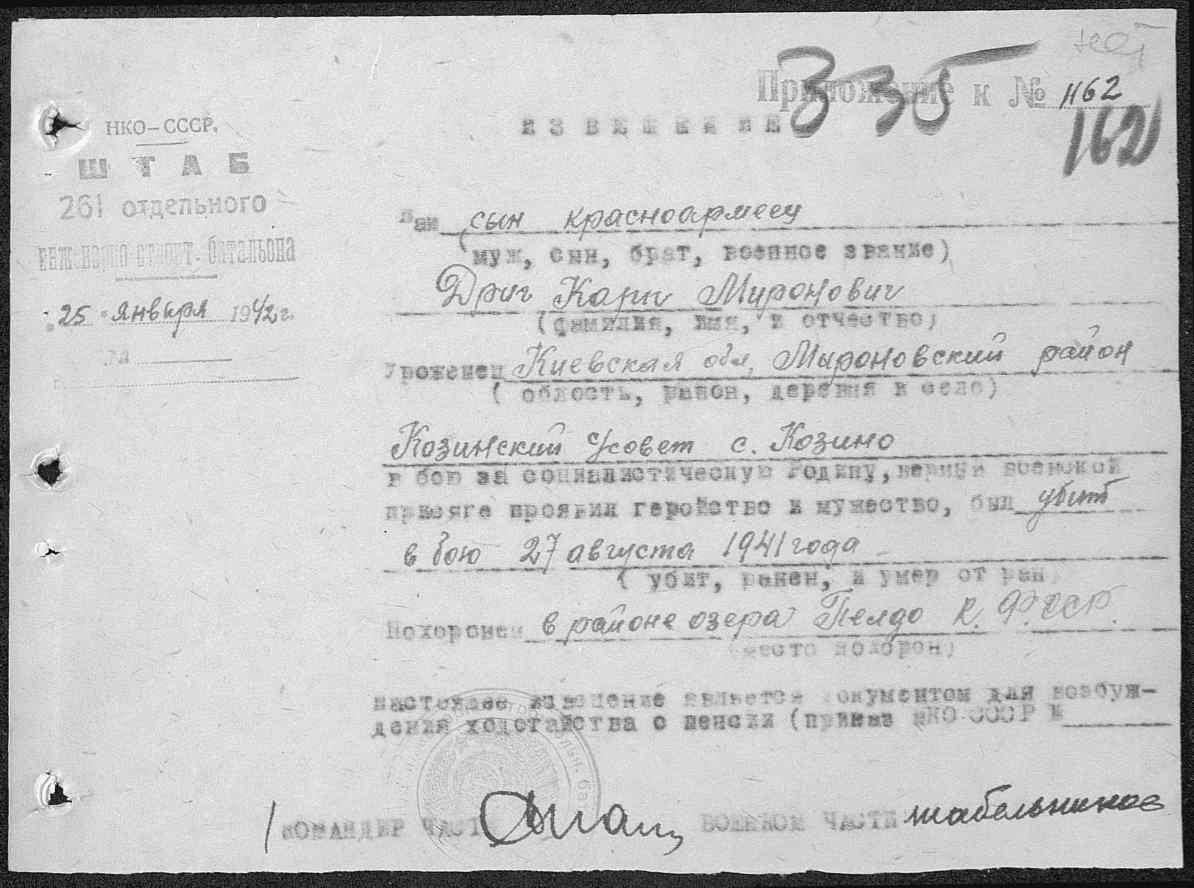 Приложение к № 1162
335
162
ИЗВЕЩЕНИЕ
НКО-СССР.
ШТАБ
261 отдельного
инженерно строит. батальона
"25" января 1942 г.
Ваш сын красноармеец
(муж, сын, брат, военное звание)
Дриг Карп Миронович
(фамилия, имя, и отчество)
Уроженец Киевская обл, Мироновский район
( область, район, деревня и село)
Козинский с/совет с. Козино
в бою за социалистическую Родину, верный воинской
присяге проявив геройство и мужество, был убит
в бою 27 августа 1941 года
( убит, ранен, и умер от ран
Похоронен в районе озера Пелдо К. Ф.ССР.
(место похорон)
настоящее извещение является документом для возбуж-
дения ходотайства о пенсии (приказ НКО-СССР №
КОМАНДИР ЧАСТИ ВОЕНКОМ ЧАСТИ Шабельников